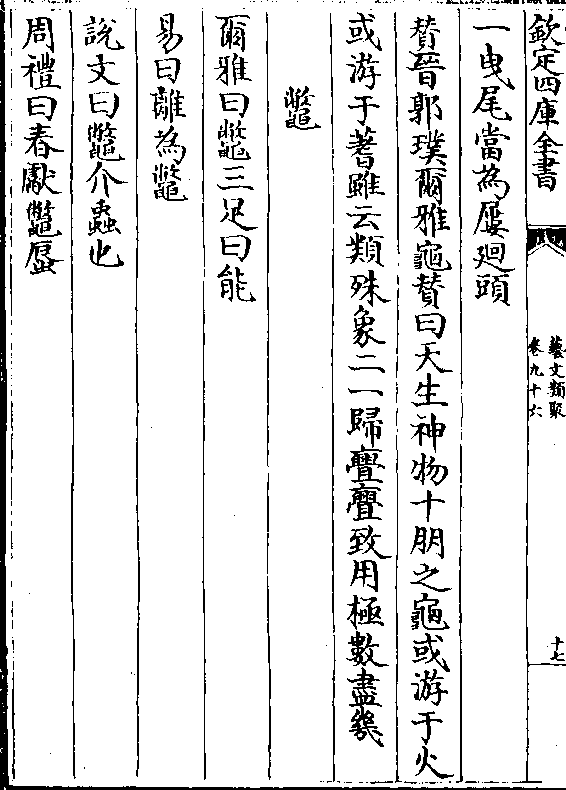 欽定四庫全書
藝文類聚
卷九十六
十七
一曳尾當為屢廻頭
贊晉郭璞爾雅龜贊曰天生神物十朋之龜或游于火
或游于蓍雖云類殊象二一歸亹亹致用極數盡幾
鼈
爾雅曰鼈三足曰能
易曰離為鼈
說文曰鼈介蟲也
周禮曰春獻鼈蜃